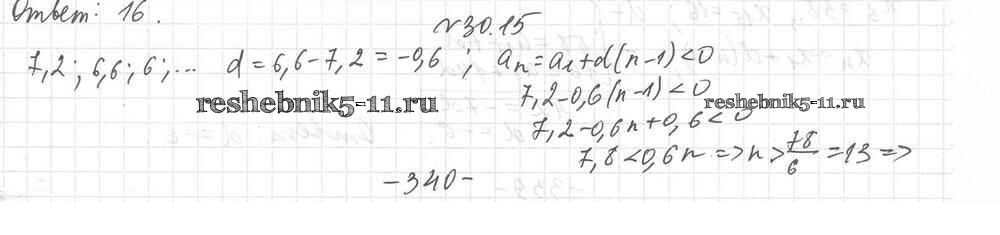 Ответ: 16.
№30.15
7,2; 6,6; 6; ... d = 6,6 - 7,2 = -0,6 ; aₙ = a₁ + d(n-1) < 0
7,2 - 0,6(n-1) < 0
reshebnik5-11.ru reshebnik5-11.ru
7,2 - 0,6n + 0,6 < 0
7,8 < 0,6n => n > 78/6 = 13 =>
-340-